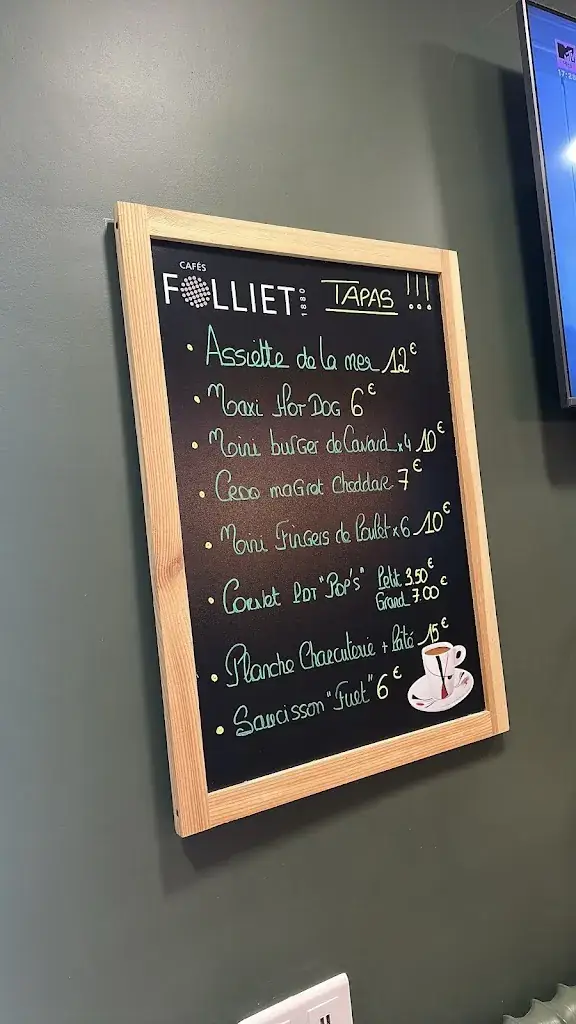 CAFÉS
FOLLIET 1880
TAPAS !!!
• Assiette de la mer 12€
• Maxi Hot Dog 6€
• Mini burger de Canard x4 10€
• Croq magret cheddar 7€
• Mini Fingers de Poulet x6 10€
• Cornet PDT "Pop's" Petit 3.50€
Grand 7.00€
• Planche Charcuterie + Pâté 15€
• Saucisson "Fuet" 6€
MTV